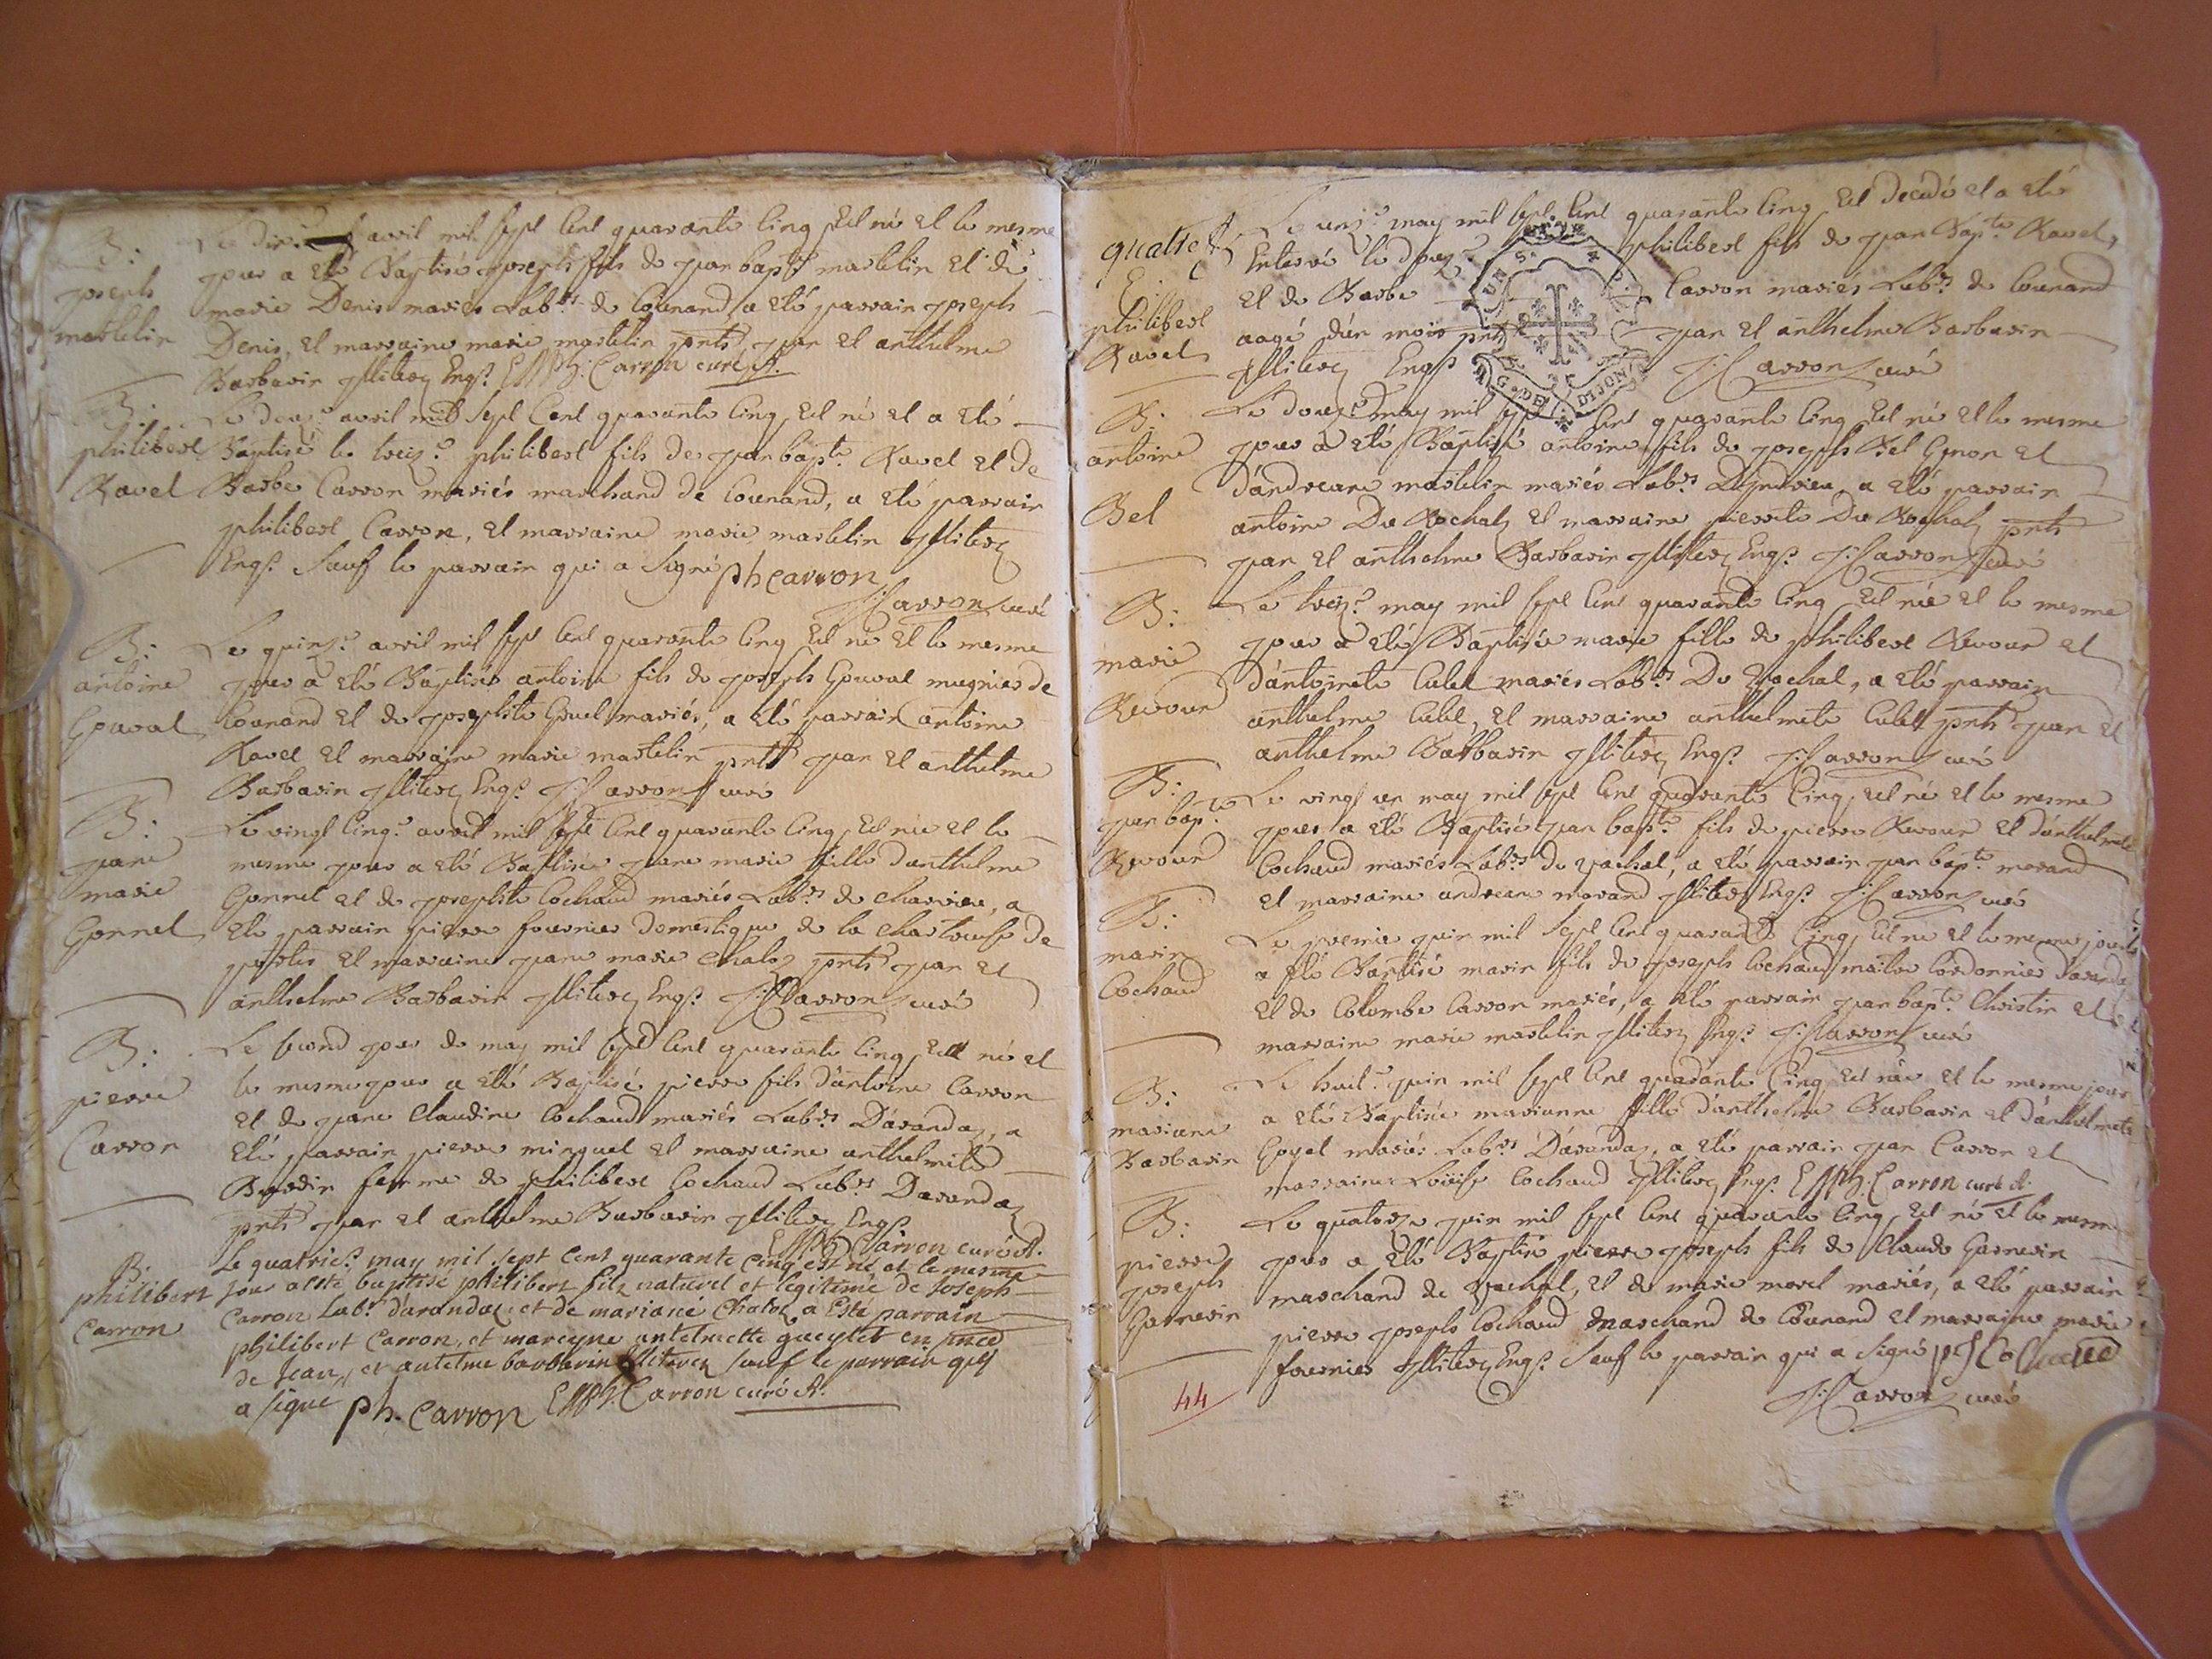 B:
joseph
martelin
Le dix avril mil sept cent quarante cinq est né et le mesme
jour a eté Baptisé joseph fils de jean bapte martelin et de
marie Denis mariés Labrs de Counand, a eté parrain joseph
Denis, et marraine marie martelin pnts jean et anthelme
Barbarin jlliterez Enqs. Carron curé A.
B:
philibert
Ravel
Le douze avril mil sept Cent quarante cinq est né et a eté
Baptisé le treize philibert fils de jean bapte. Ravel et de
Barbe Carron mariés marchand de Counand, a eté parrain
philibert Carron, et marraine marie martelin jlliterez
Enqs. Sauf le parrain qui a Signé ph carron
Carron curé
B:
antoine
Gouval
Le quinze avril mil sept Cent quarante cinq est né et le mesme
jour a eté Baptisé antoine fils de joseph Gouval mugnier de
Counand et de josephte mariés, a eté parrain antoine
Ravel et marraine marie martelin pnts jean et anthelme
Barbarin jlliterez Enqs. Carron curé
B:
jeane
marie
Gonnel
Le vingt cinqe avril mil sept Cent quarante cinq est née et le
mesme jour a eté Baptisée jeane marie fille d'anthelme
Gonnel et de josephte Cochaud mariés Labrs de charvieu, a
eté parrain pierre fournier domestique de la Chartreuse de
portes et marraine jeane marie Chaloz pnts jean et
anthelme Barbarin jlliterez Enqs. Carron curé
B:
pierre
Carron
Le second jour de may mil sept Cent quarante cinq est né et
le mesme jour a eté Baptisé pierre fils d'antoine Carron
et de jeane Claudine Cochaud mariés Labrs D'arandaz, a
eté parrain pierre minguet et marraine anthelmete
femme de philibert Cochaud Labrs Darandaz
pnts jean et anthelme Barbarin jlliterez Enqs.
Carron curé A.
B.
philibert
Carron
Le quatrie. may mil sept cent quarante cinq est né et le mesme
jour a esté baptisé philibert filz naturel et legitime de Joseph
Carron Labr. d'arandaz et de mariane Chaloz a Esté parrain
philibert Carron, et mareyne antelmette en pnce
de Jean, et antelme barbarin jlliterez sauf le parrain qui
a signe ph. Carron Carron curé A.
quatre
E:
philibert
Ravel
Le onze may mil sept Cent quarante cinq est decedé et a eté
Enterré le douze philibert fils de jean Bapte Ravel,
et de Barbe Carron mariés Labrs de Counand
aagé d'un mois pnts jean et anthelme Barbarin
jlliterez Enqs Carron curé
G. DE DIJON
B:
antoine
Bel
Le douze may mil sept Cent quarante cinq est né et le mesme
jour a eté Baptisé antoine fils de joseph Bel Genon et
d'andreane martelin mariés Labrs D'indrieu, a eté parrain
antoine Du Rochat et marraine pierrete Du Rochat pnts
jean et anthelme Barbarin jlliterez Enqs. Carron curé
B:
marie
Revour
Le treize may mil sept Cent quarante cinq est née et le mesme
jour a eté Baptisée marie fille de philibert Revour et
d'antoinete Culet mariés Labrs Du Rochat, a eté parrain
anthelme Culet, et marraine anthelmete Culet pnts jean et
anthelme Barbarin jlliterez Enqs. Carron curé
B:
jean bapte
Revour
Le vingt un may mil sept Cent quarante Cinq est né et le mesme
jour a eté Baptisé jean bapte fils de pierre Revour et d'anthelmete
Cochaud mariés Labrs du, a eté parrain jean bapte morand
et marraine andreane morand jlliterez Enqs. Carron curé
B:
marin
Cochaud
Le premier juin mil sept Cent quarante Cinq est né et le mesme jour
a eté Baptisé marin fils de joseph Cochaud maitre Cordonnier d'arandaz
et de Colombe Carron mariés, a eté parrain jean bapte Christin et
marraine marie martelin jlliterez Enqs. Carron curé
B:
mariane
Barbarin
Le huite juin mil sept Cent quarante Cinq est née et le mesme jour
a eté Baptisée marianne fille d'anthelme Barbarin et d'anthelmete
Goyet mariés Labrs D'arandaz, a eté parrain jean Carron et
marraine Louise Cochaud jlliterez Enqs. Carron curé A.
B:
pierre
joseph
Garnerin
Le quatorze juin mil sept Cent quarante Cinq est né et le mesme
jour a eté Baptisé pierre joseph fils de Claude Garnerin
marchand de, et de marie morel mariés, a eté parrain
pierre joseph Cochaud marchand de Counand et marraine marie
fournier jlliterez Enqs. Sauf le parrain qui a signé pj Cochaud
Carron curé
44